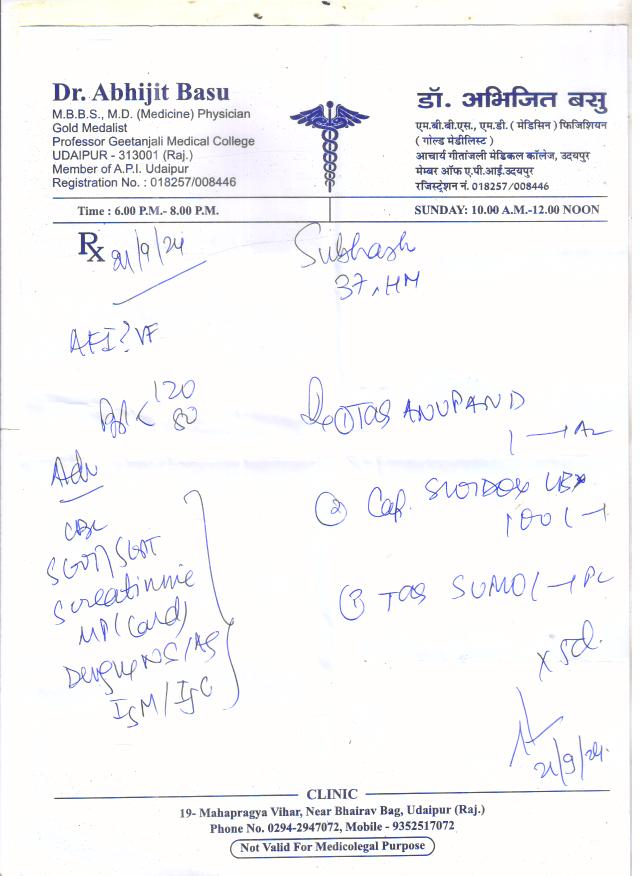 Dr. Abhijit Basu
M.B.B.S., M.D. (Medicine) Physician
Gold Medalist
Professor Geetanjali Medical College
UDAIPUR - 313001 (Raj.)
Member of A.P.I. Udaipur
Registration No. : 018257/008446
डॉ. अभिजित बसु
एम.बी.बी.एस., एम.डी. ( मेडिसिन ) फिजिशियन
( गोल्ड मेडीलिस्ट )
आचार्य गीतांजली मेडिकल कॉलेज, उदयपुर
मेम्बर ऑफ ए.पी.आई.उदयपुर
रजिस्ट्रेशन नं. 018257/008446
Time : 6.00 P.M.- 8.00 P.M.
SUNDAY: 10.00 A.M.-12.00 NOON
Rx 21/9/24
Subhash
37,
AFI? VF
120
80
Adv
CBC
SGOT/SGPT
S creatinine
MP (Card)
Dengue NS1/AG
IgM/IgG
① TAB
1
② Cap.
100 1
③ TAB SUMO 1
x 5d.
21/9/24.
CLINIC
19- Mahapragya Vihar, Near Bhairav Bag, Udaipur (Raj.)
Phone No. 0294-2947072, Mobile - 9352517072
Not Valid For Medicolegal Purpose